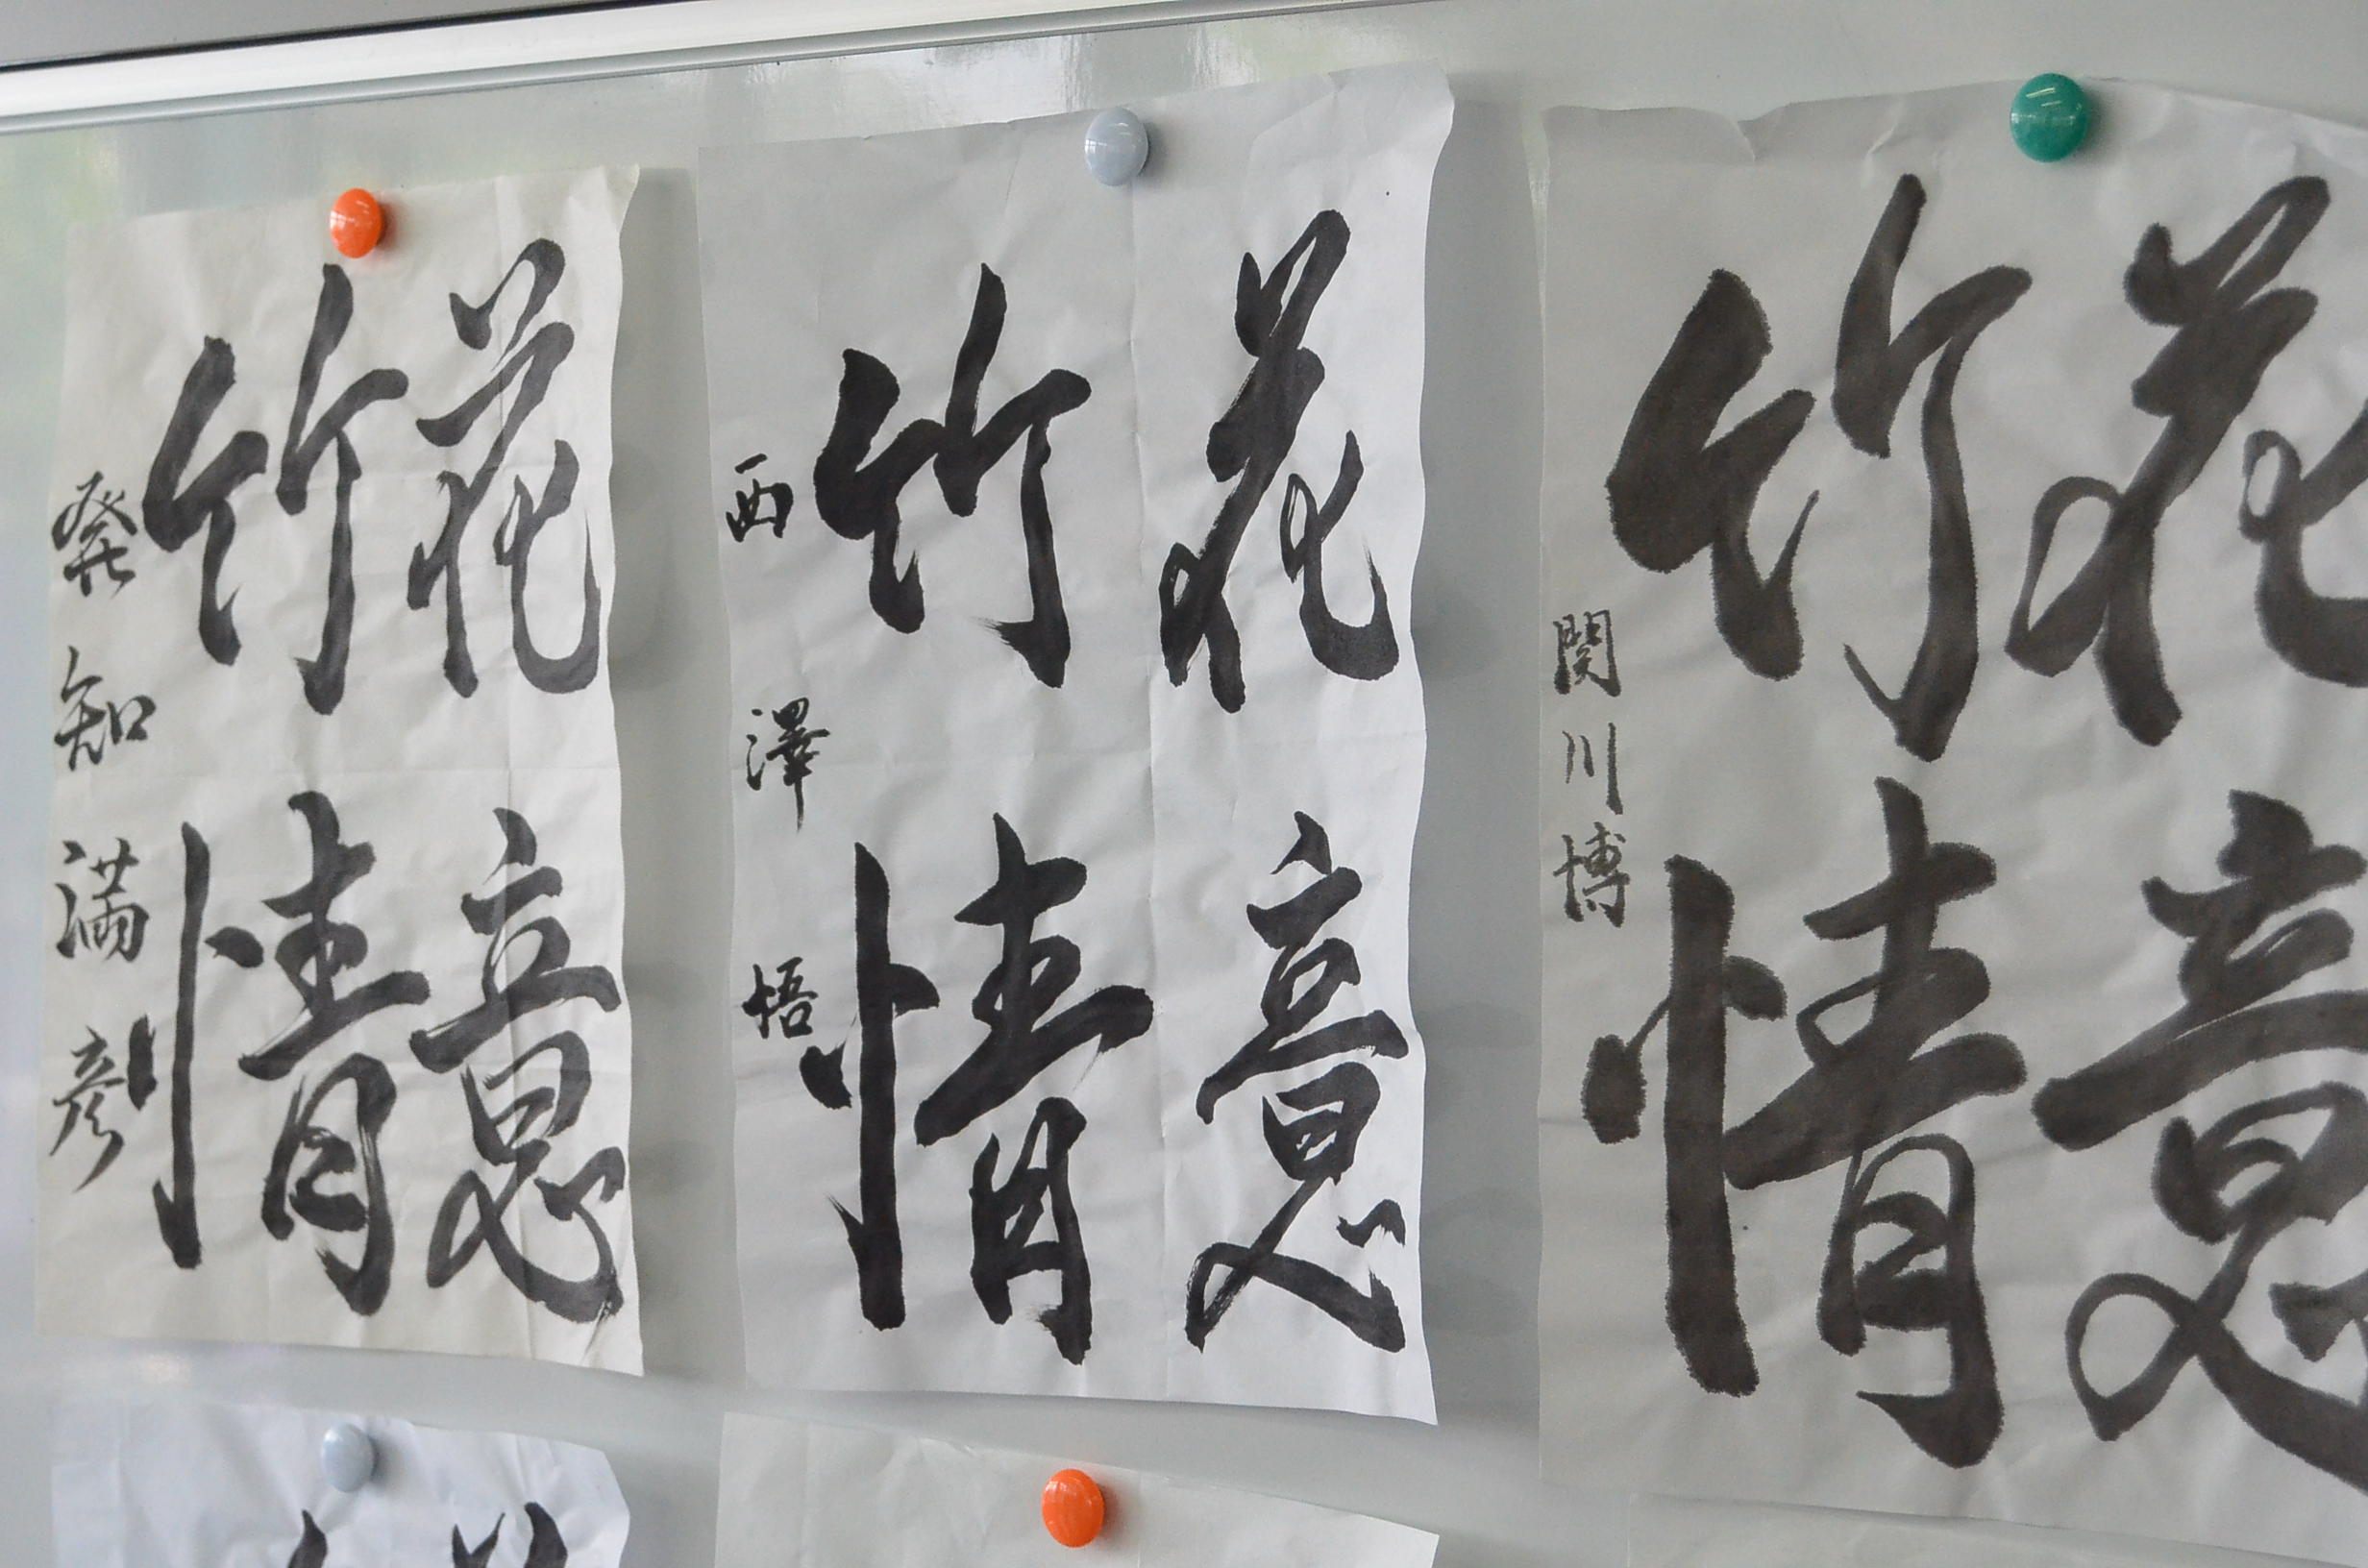 花意
竹情
発知満彦
花意
竹情
西澤悟
花意
竹情
関川博